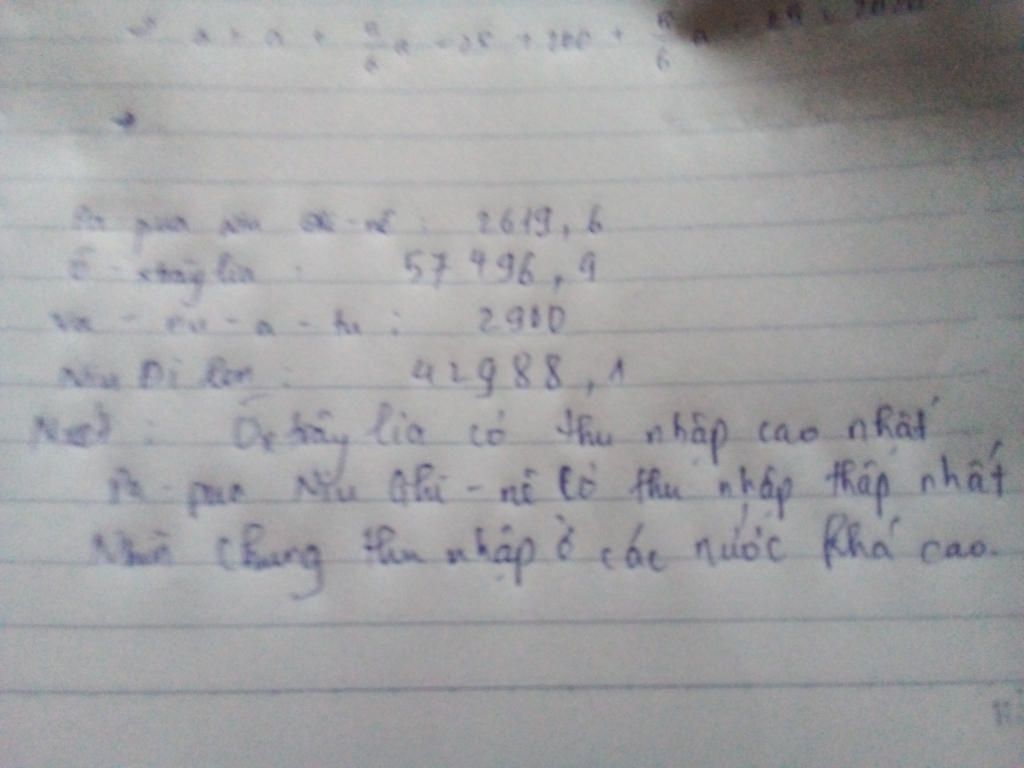 Pa pua niu Ghi-nê : 2619,6
Ô-xtrây lia : 57 496,9
Va-nu-a-tu : 2900
Niu Di len : 42988,1
Nxét : Ôxtrây lia có thu nhập cao nhất
Pa-pua Niu Ghi-nê có thu nhập thấp nhất
Nhìn chung thu nhập ở các nước khá cao.